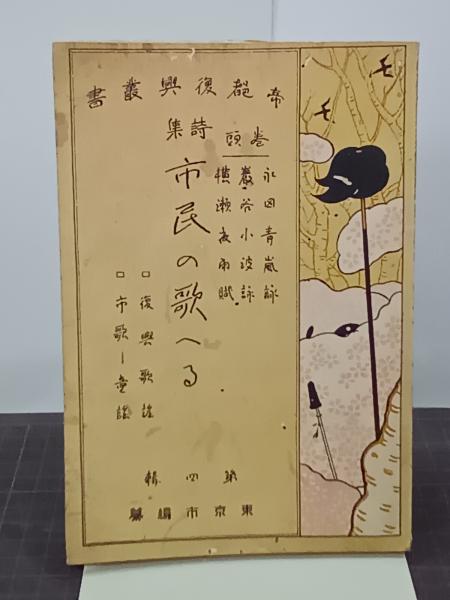 帝都復興叢書
巻頭
永田青嵐詠
巖谷小波詠
横瀬夜雨賦
詩集
市民の歌へる
□復興歌謡
□市歌ー童謡
第四輯
東京市編纂